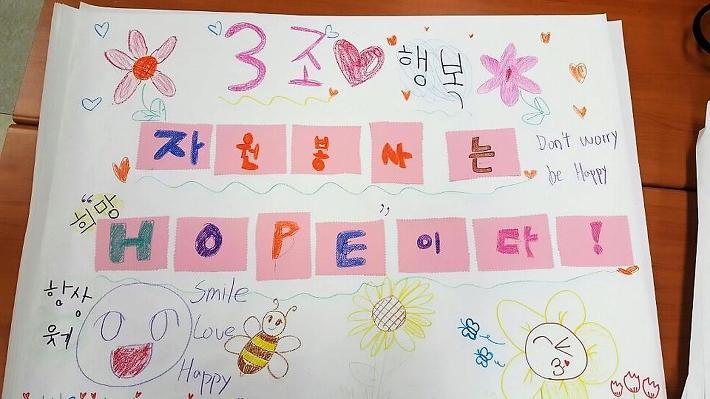 3조 행복
자원봉사는
Don't worry
be Happy
"희망
HOPE"이다!
항상
웃겨
Smile
Love
Happy